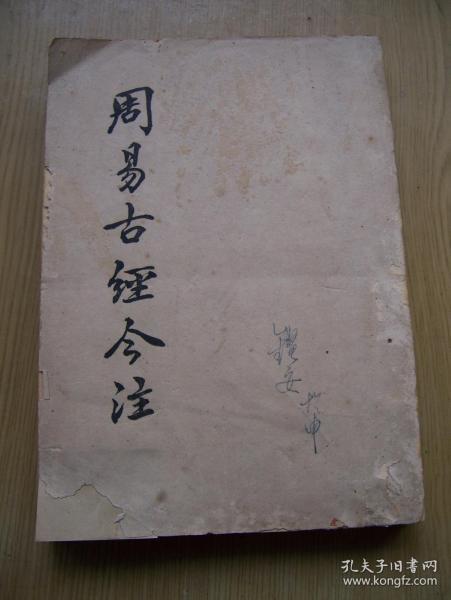 周易古經今注
孔夫子旧书网
www.kongfz.com